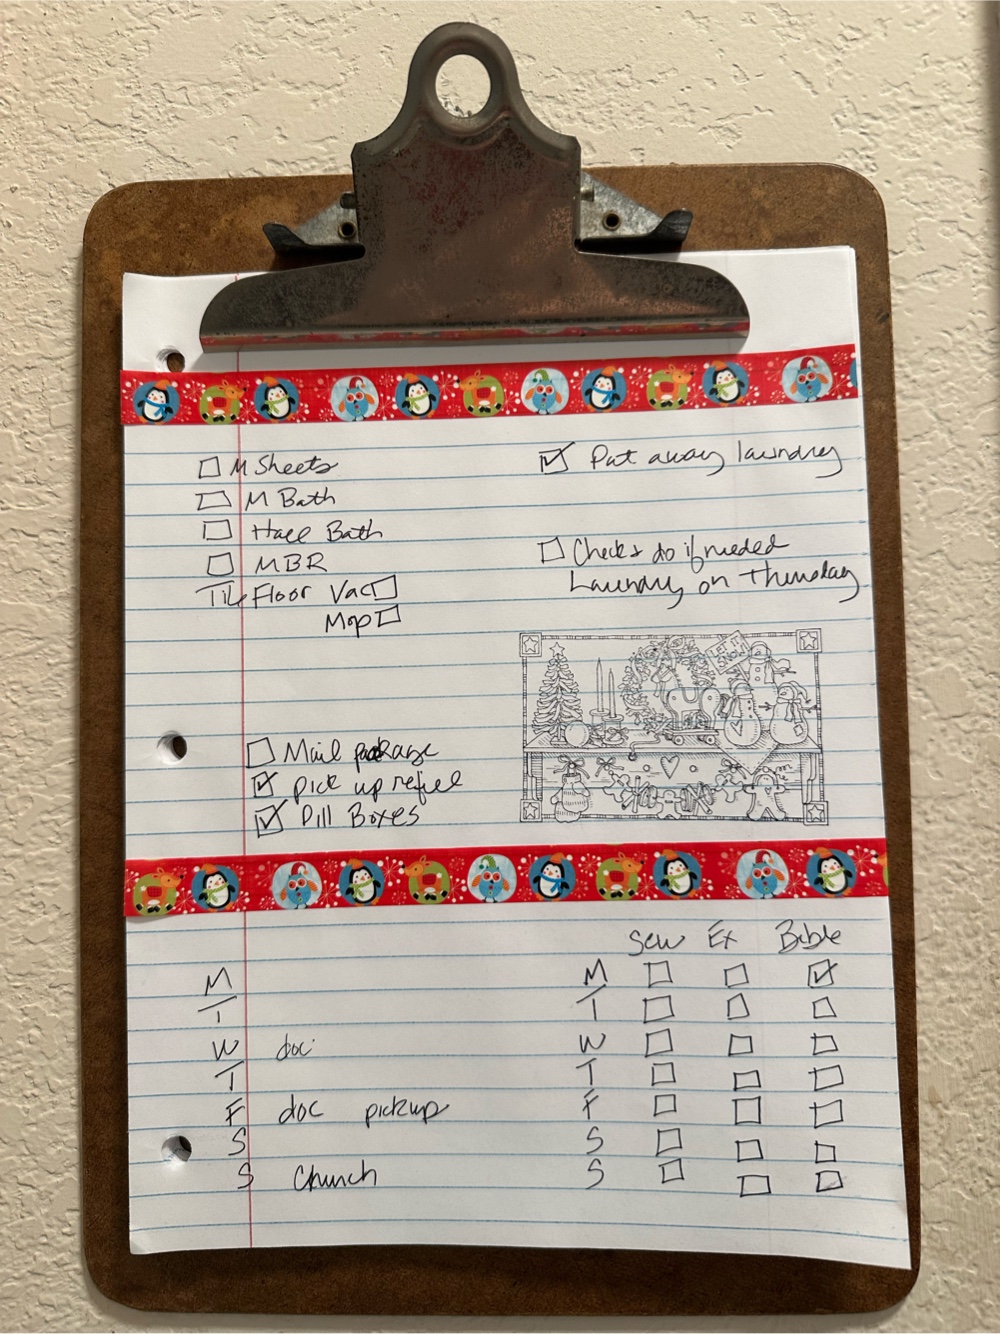 M Sheets
M Bath
Hall Bath
MBR
Tile Floor Vac
Mop
Put away laundry
Check & do if needed
Laundry on Thursday
LET IT
SNOW
Mail package
Pick up refill
Pill Boxes
M
T
W doc
T
F doc pickup
S
S Church
Sew Ex Bible
M
T
W
T
F
S
S